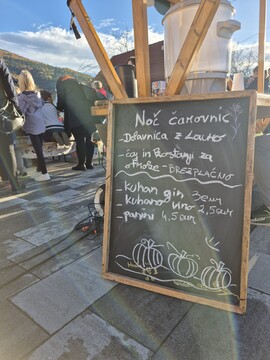 Noč čarovnic
Delavnica z Lavro
- čaj in kostanji za
otroke - BREZPLAČNO
- kuhan gin 3eur
- kuhano vino 2,5eur
- panini 4,5eur